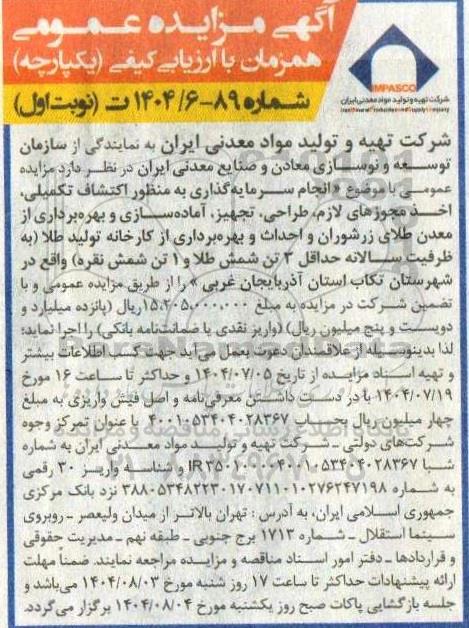 آگهی مزایده عمومی
همزمان با ارزیابی کیفی (یکپارچه)
شماره ۸۹-۱۴۰۴/۶ ت (نوبت اول)
IMPASCO
شرکت تهیه و تولید مواد معدنی ایران
شرکت تهیه و تولید مواد معدنی ایران به نمایندگی از سازمان
توسعه و نوسازی معادن و صنایع معدنی ایران در نظر دارد مزایده
عمومی با موضوع « انجام سرمایه‌گذاری به منظور اکتشاف تکمیلی،
اخذ مجوزهای لازم، طراحی، تجهیز، آماده‌سازی و بهره‌برداری از
معدن طلای زرشوران و احداث و بهره‌برداری از کارخانه تولید طلا (به
ظرفیت سالانه حداقل ۳ تن شمش طلا و ۱ تن شمش نقره) واقع در
شهرستان تکاب استان آذربایجان غربی » را از طریق مزایده عمومی و با
تضمین شرکت در مزایده به مبلغ ۱۵،۲۰۵،۰۰۰،۰۰۰ریال (پانزده میلیارد و
دویست و پنج میلیون ریال) (واریز نقدی یا ضمانت‌نامه بانکی) را اجرا نماید؛
لذا بدینوسیله از علاقمندان دعوت بعمل می‌آید جهت کسب اطلاعات بیشتر
و تهیه اسناد مزایده از تاریخ ۱۴۰۴/۰۷/۰۵ و حداکثر تا ساعت ۱۶ مورخ
۱۴۰۴/۰۷/۱۹ با در دست داشتن معرفی‌نامه و اصل فیش واریزی به مبلغ
چهار میلیون ریال بحساب ۴۰۰۱۰۵۳۴۰۴۰۲۸۳۶۷ با عنوان تمرکز وجوه
شرکت‌های دولتی – شرکت تهیه و تولید مواد معدنی ایران به شماره
شبا IR ۳۵۰۱۰۰۰۰۴۰۰۱۰۵۳۴۰۴۰۲۸۳۶۷ و شناسه واریز ۳۰ رقمی
به شماره ۳۸۸۰۵۳۴۸۲۲۳۰۱۷۰۷۱۱۰۱۰۲۷۶۲۴۷۱۹۸ نزد بانک مرکزی
جمهوری اسلامی ایران، به آدرس : تهران بالاتر از میدان ولیعصر - روبروی
سینما استقلال – شماره ۱۷۱۳ برج جنوبی – طبقه نهم – مدیریت حقوقی
و قراردادها – دفتر امور اسناد مناقصه و مزایده مراجعه نمایند. ضمناً مهلت
ارائه پیشنهادات حداکثر تا ساعت ۱۷ روز شنبه مورخ ۱۴۰۴/۰۸/۰۳ می‌باشد و
جلسه بازگشایی پاکات صبح روز یکشنبه مورخ ۱۴۰۴/۰۸/۰۴ برگزار می‌گردد.